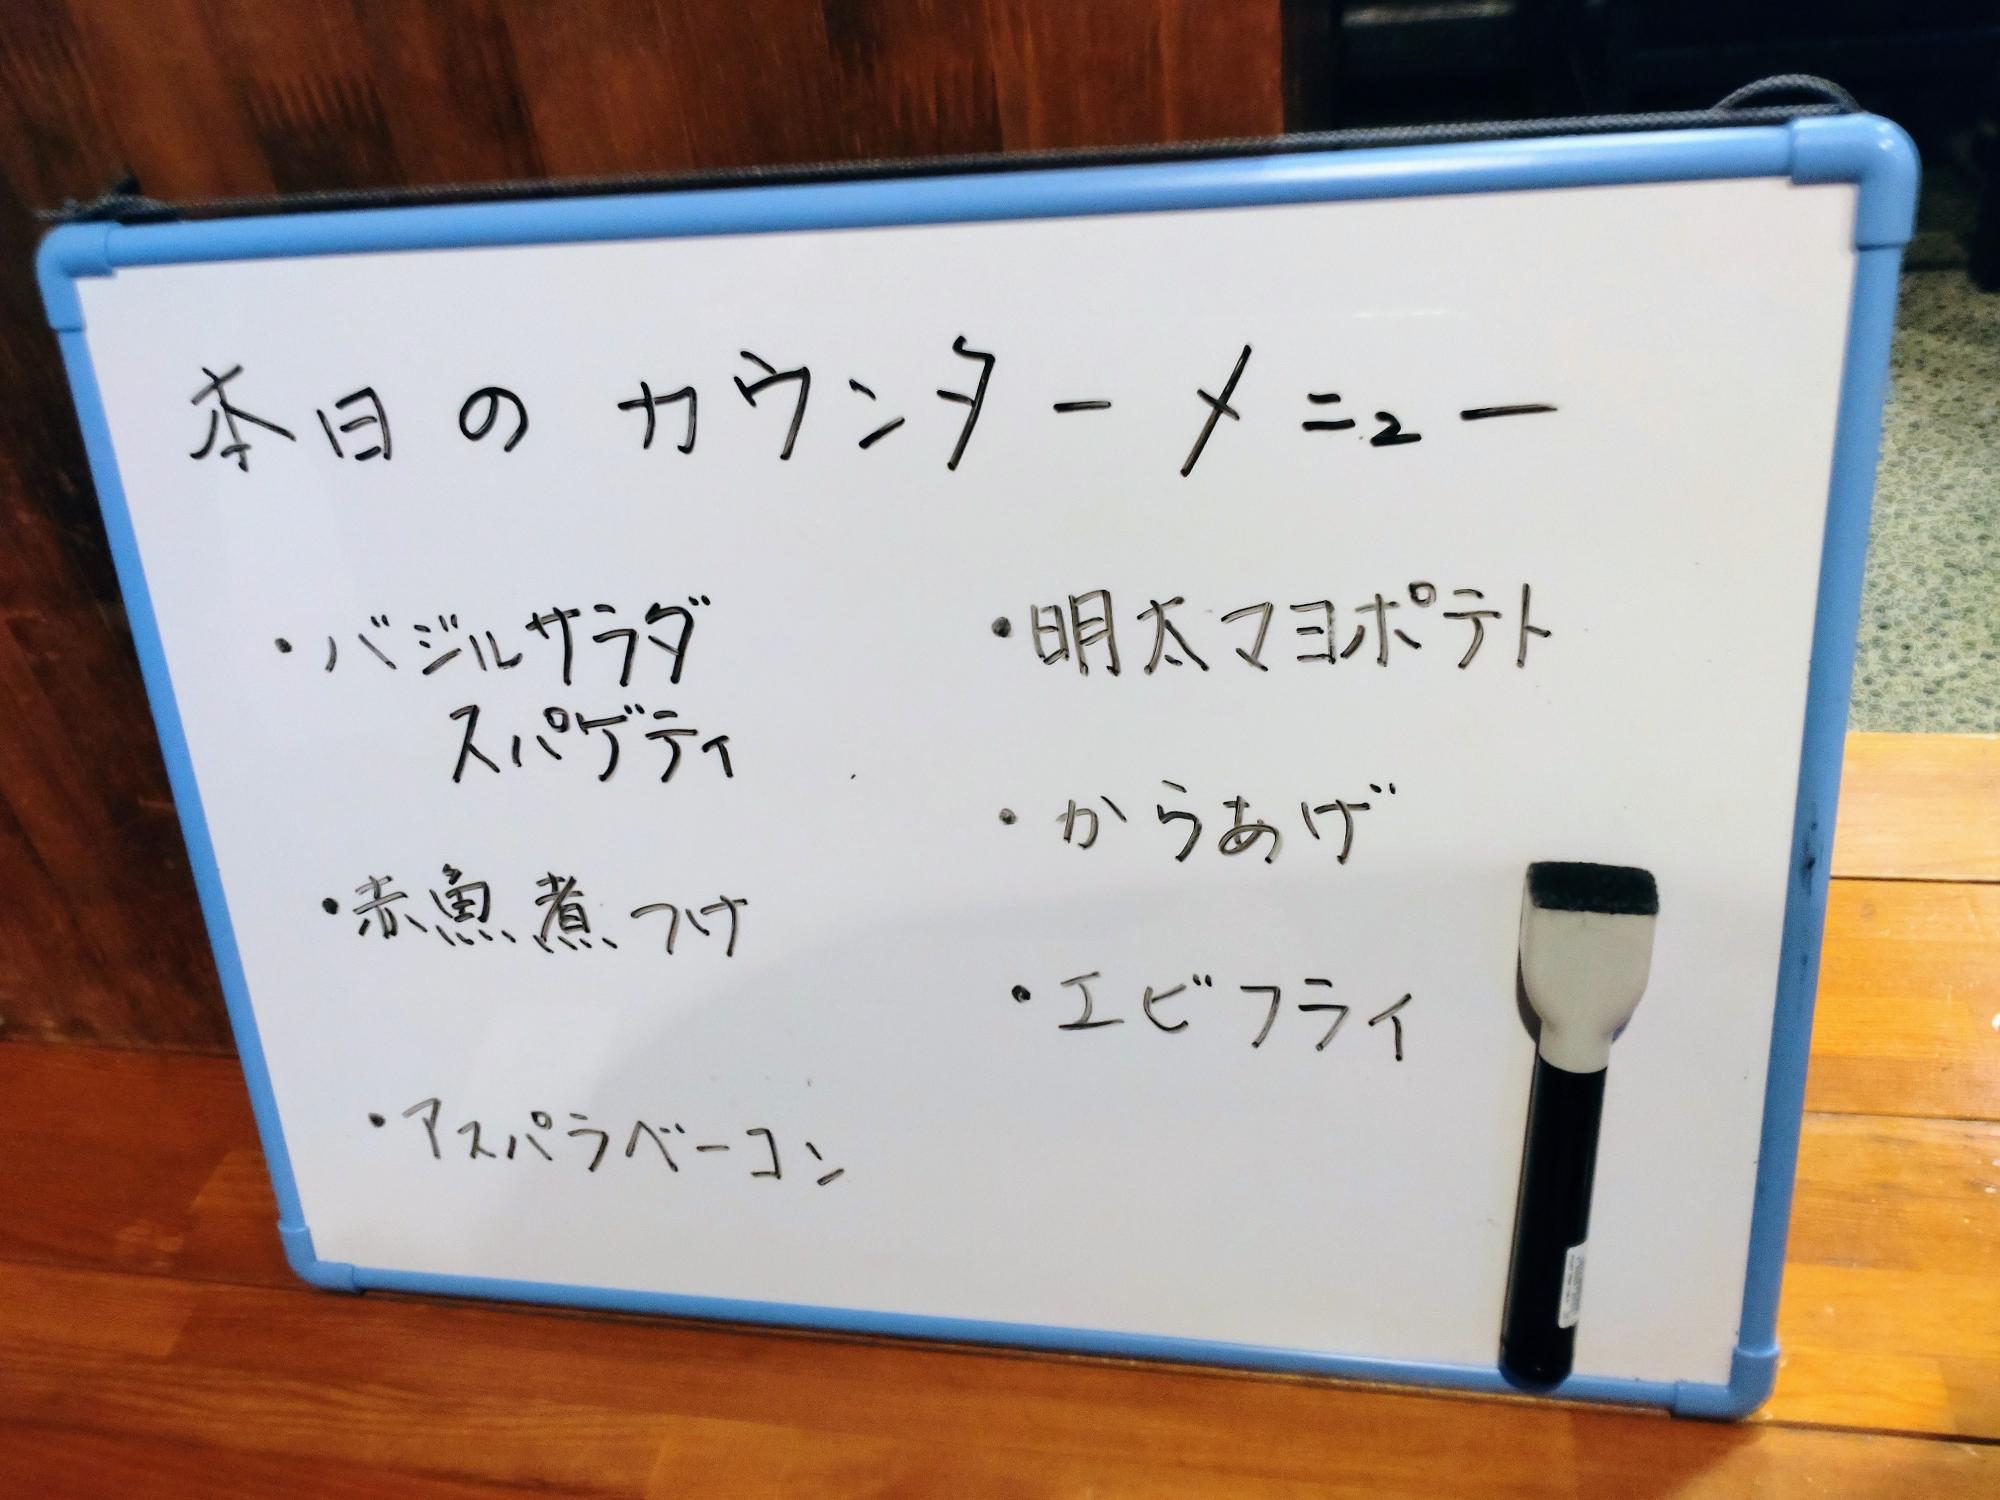 本日のカウンターメニュー
・バジルサラダ
スパゲティ
・赤魚煮つけ
・アスパラベーコン
・明太マヨポテト
・からあげ
・エビフライ